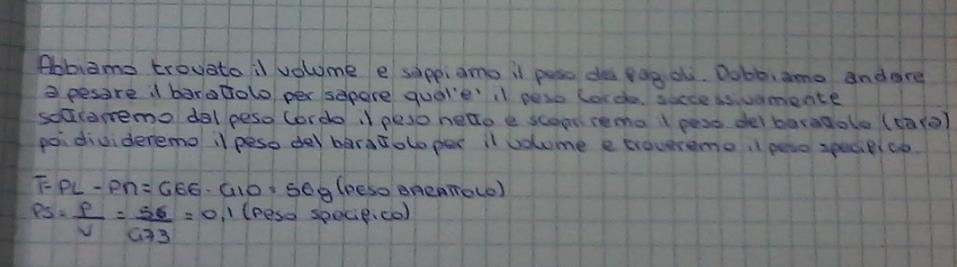 Abbiamo trovato il volume e sappiamo il peso dei fagioli. Dobbiamo andare
a pesare il barattolo per sapere qual'e' il peso lordo. successivamente
sottrarremo dal peso lordo il peso netto e scopriremo il peso del barattolo (tara)
poi divideremo il peso del barattolo per il volume e troveremo il peso specifico.
T= PL - Pn = 466 - 410 = 56g (peso BARATTOLO)
PS = P/V = 56/473 = 0,1 (Peso specifico)